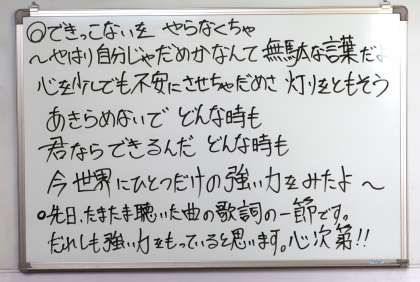 ◎できっこないを やらなくちゃ
～やはり自分じゃだめかなんて 無駄な言葉だよ
心を少しでも不安にさせちゃだめさ 灯りをともそう
あきらめないで どんな時も
君ならできるんだ どんな時も
今 世界にひとつだけの 強い力をみたよ ～
○先日、たまたま聴いた曲の歌詞の一節です。
だれしも強い力をもっていると思います。心次第!!